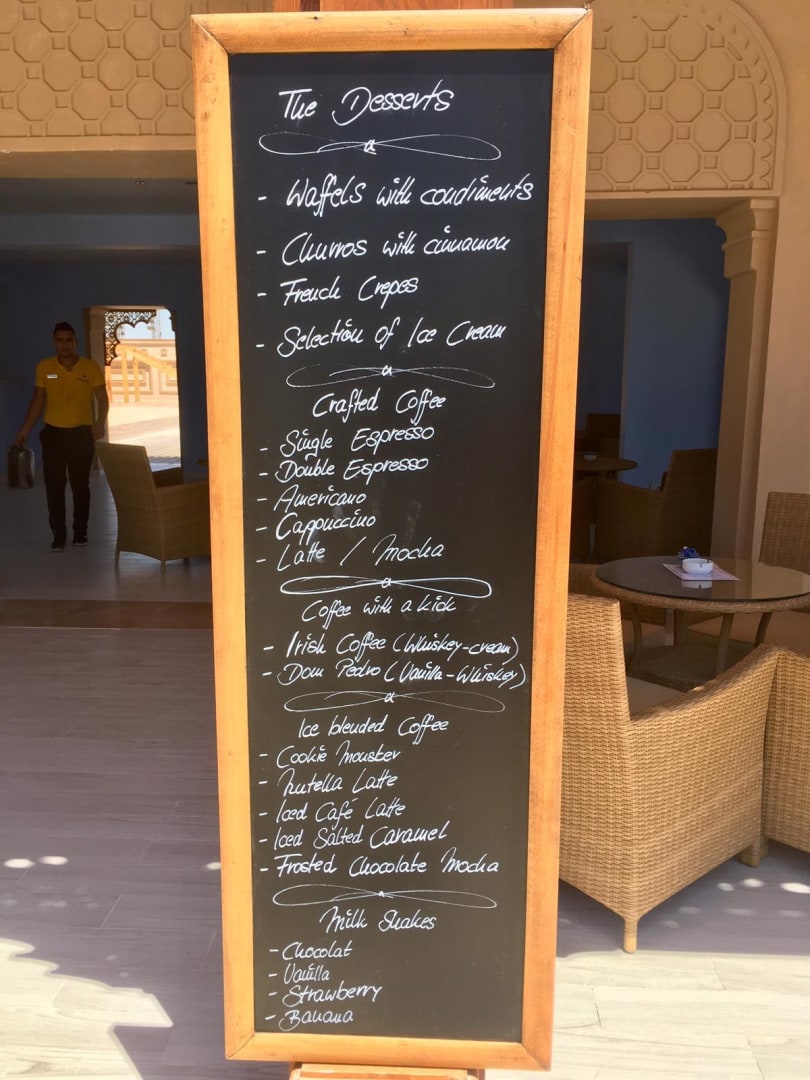 The Desserts
- Waffels with condiments
- Churros with cinnamon
- French Crepes
- Selection of Ice Cream
Crafted Coffee
- Single Espresso
- Double Espresso
- Americano
- Cappuccino
- Latte / Mocha
Coffee with a kick
- Irish Coffee (Whiskey-cream)
- Dom Pedro (Vanilla-Whiskey)
Ice blended Coffee
- Cookie Monster
- Nutella Latte
- Iced Café Latte
- Iced Salted Caramel
- Frosted Chocolate Mocha
Milk Shakes
- Chocolat
- Vanilla
- Strawberry
- Banana